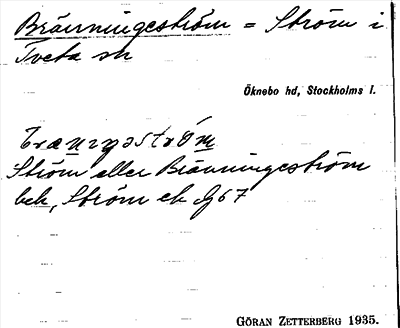 Bränningeström = Ström i
Tveta sn
Öknebo hd, Stockholms l.
Ström eller Bränningeström
bek, Ström ek
GÖRAN ZETTERBERG 1935.